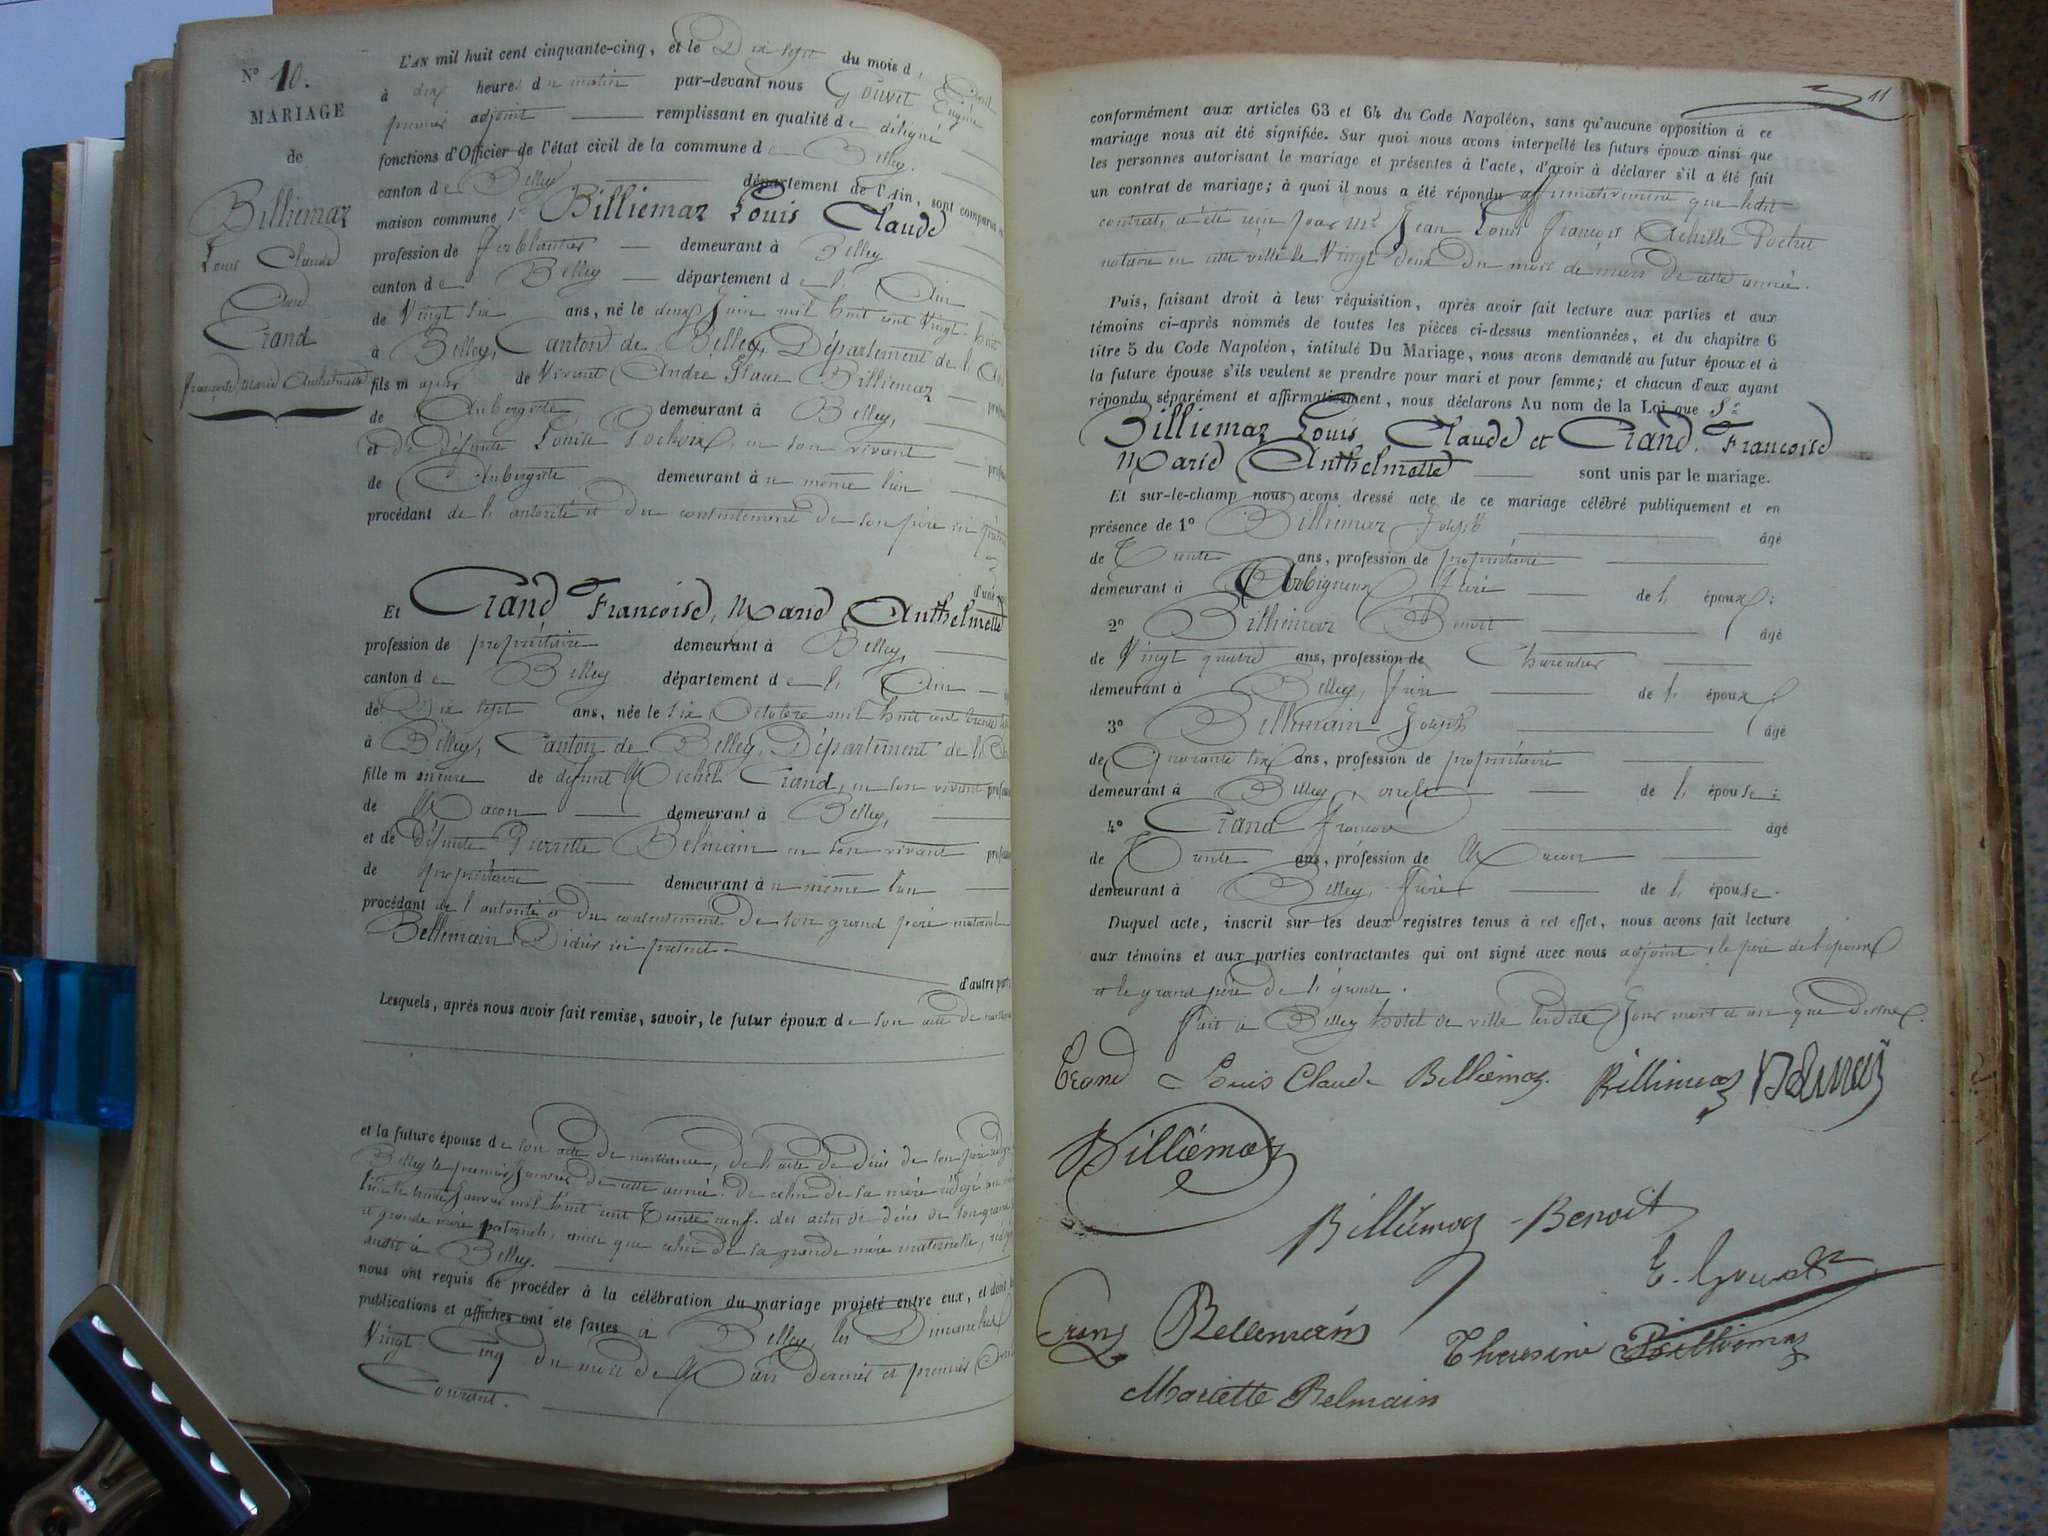 N° 10.
MARIAGE
de
Billiemaz
Louis Claude
Avec
Crand
Françoise, Marie Anthelmette
L'AN mil huit cent cinquante-cinq, et le Dix sept du mois d'Avril
à dix heures du matin par-devant nous Gouvet Eugène
premier adjoint remplissant en qualité de délégué
fonctions d'Officier de l'état civil de la commune de Belley.
canton de Belley département de l'Ain, sont comparus
maison commune Sr Billiemaz Louis Claude
profession de ferblantier demeurant à Belley
canton de Belley département de l'Ain
de Vingt six ans, né le deux Juin mil huit cent Vingt huit
à Belley, Canton de Belley, Département de l'Ain
fils majeur de Vivant André Billiemaz
de Aubergiste demeurant à Belley,
et de défunte Louise Pochoix, en son vivant
de Aubergiste demeurant à même lieu
procédant de l'autorité et du consentement de son père ici présent
d'une
Et Crand Françoise, Marie Anthelmette
profession de propriétaire demeurant à Belley,
canton de Belley département de l'Ain
de Dix sept ans, née le six Octobre mil huit cent trente
à Belley, Canton de Belley, Département de l'Ain
fille mineure de défunt Michel Crand, en son vivant
de Maçon demeurant à Belley,
et de défunte Pierrette Belmain en son vivant
de propriétaire demeurant à même lieu
procédant de l'autorité et du consentement de son grand père maternel
Bellemain Didier ici présent.
d'autre part;
Lesquels, après nous avoir fait remise, savoir, le futur époux de son acte de naissance
et la future épouse de son acte de naissance, de l'acte de décès de son père rédigé
Belley le premier Janvier de cette année. de celui de sa mère rédigé au
lieu le Janvier mil huit cent trente neuf. des actes de décès de son grand
et grande mère paternels, ainsi que celui de sa grande mère maternelle, rédigés
aussi à Belley.
nous ont requis de procéder à la célébration du mariage projeté entre eux, et dont
publications et affiches ont été faites à Belley, les Dimanches
Vingt Cinq du mois de Mars dernier et premier Avril
Courant.
11
conformément aux articles 63 et 64 du Code Napoléon, sans qu'aucune opposition à ce
mariage nous ait été signifiée. Sur quoi nous avons interpellé les futurs époux ainsi que
les personnes autorisant le mariage et présentes à l'acte, d'avoir à déclarer s'il a été fait
un contrat de mariage; à quoi il nous a été répondu affirmativement que ledit
contrat, a été reçu par Me Jean Louis François Achille Pochet
notaire en cette ville le Vingt deux du mois de mars de cette année.
Puis, faisant droit à leur réquisition, après avoir fait lecture aux parties et aux
témoins ci-après nommés de toutes les pièces ci-dessus mentionnées, et du chapitre 6
titre 5 du Code Napoléon, intitulé Du Mariage, nous avons demandé au futur époux et à
la future épouse s'ils veulent se prendre pour mari et pour femme; et chacun d'eux ayant
répondu séparément et affirmativement, nous déclarons Au nom de la Loi que Sr
Billiemaz Louis Claude et Crand. Françoise
Marie Anthelmette sont unis par le mariage.
Et sur-le-champ nous avons dressé acte de ce mariage célébré publiquement et en
présence de 1° Billiemaz Joseph âgé
de Trente ans, profession de propriétaire
demeurant à Arbignieux frère de l'époux;
2° Billiemaz Benoit âgé
de Vingt quatre ans, profession de
demeurant à Belley, frère de l'époux;
3° Bellemain Joseph âgé
de Quarante six ans, profession de propriétaire
demeurant à Belley, oncle de l'épouse;
4° Crand François âgé
de Trente ans, profession de Maçon
demeurant à Belley, frère de l'épouse.
Duquel acte, inscrit sur les deux registres tenus à cet effet, nous avons fait lecture
aux témoins et aux parties contractantes qui ont signé avec nous adjoint, le père de l'époux
et le grand père de l'épouse.
Fait à Belley hotel de ville lesdits Jour mois et an que dessus.
Crand Louis Claude Billiemaz. Billiemaz Belmain
Billiemaz
Billiémaz Benoit
E. Gouvet
Crand Bellemain Theresine Billiemaz
Mariette Belmain